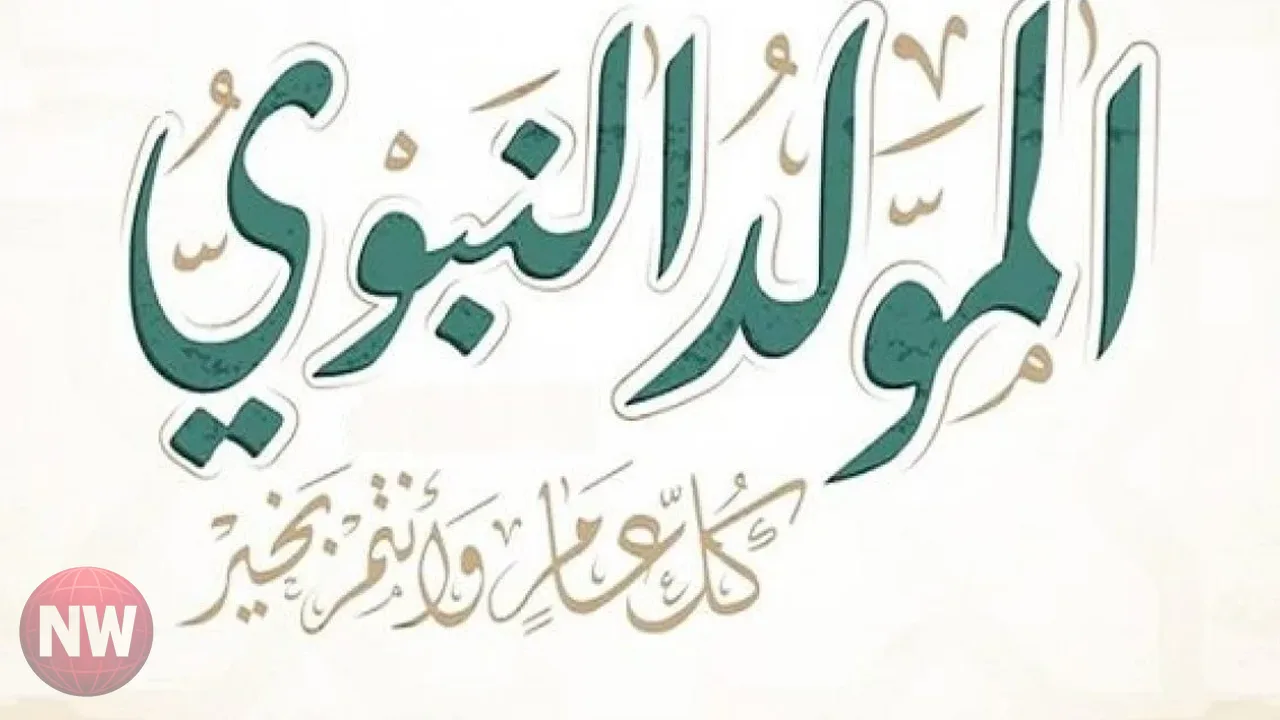 المولد النبوي
كُلُّ عَامٍ وَأَنْتُمْ بِخَيْرٍ
NW